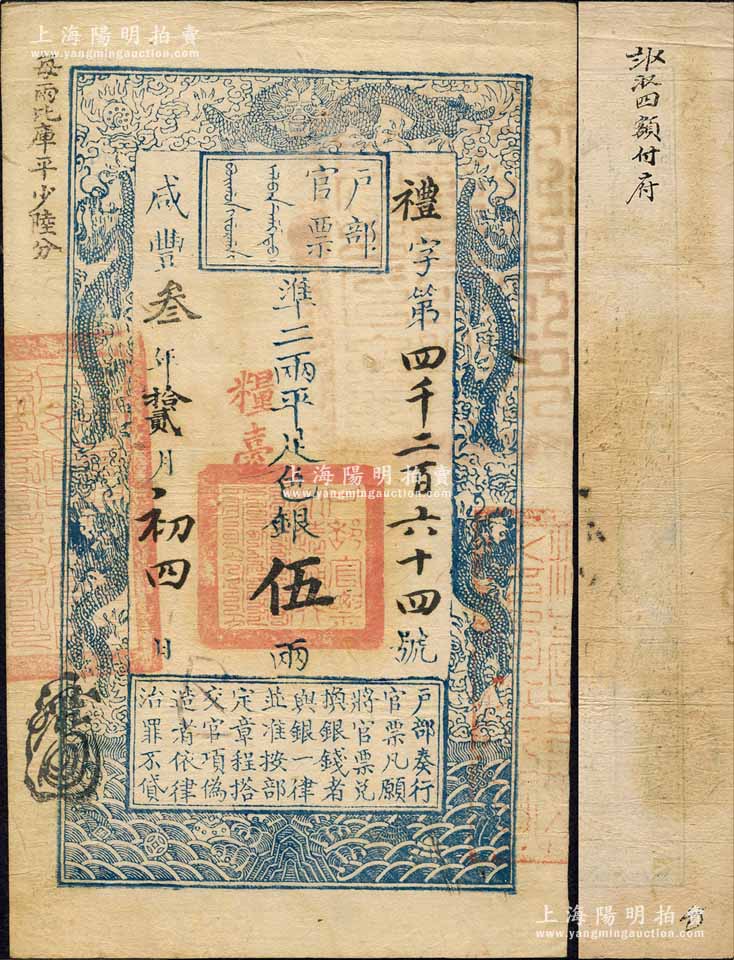 上海陽明拍賣
www.yangmingauction.com
每兩比庫平少陸分
戶部
官票
禮字第四千二百六十四號
準二兩平足色銀伍兩
咸豐叁年拾貳月初四日
糧臺
戶部奏行
官票凡願
將官票兌
換銀錢者
與銀一律
並准按部
定章程搭
交官項偽
造者依律
治罪不貸
四額付府
上海陽明拍賣
www.yangmingauction.com
上海陽明拍賣
www.yangmingauction.com